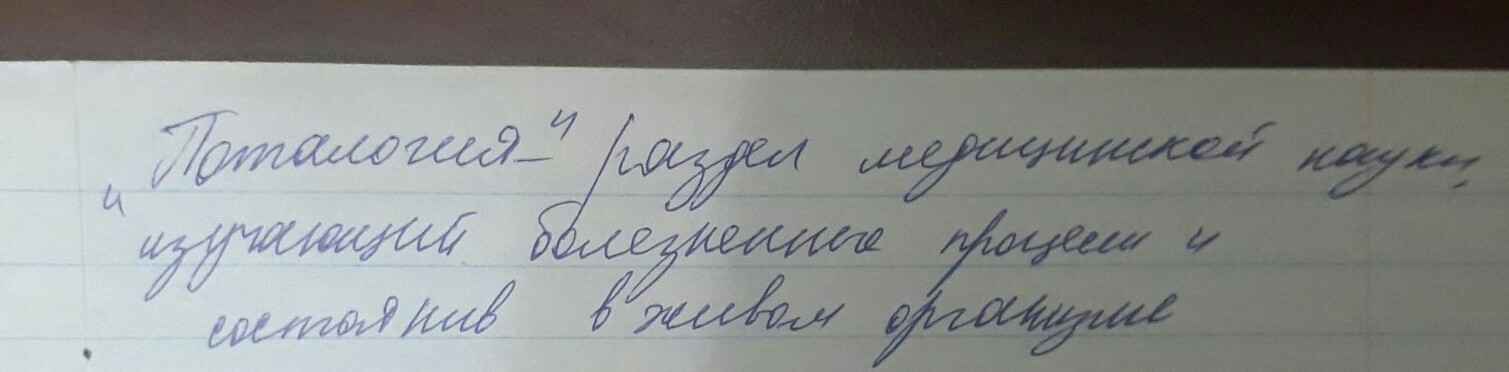 „Поталогия–" раздел медицинской науки,
изучающий болезненные процессы и
состояния в живом организме